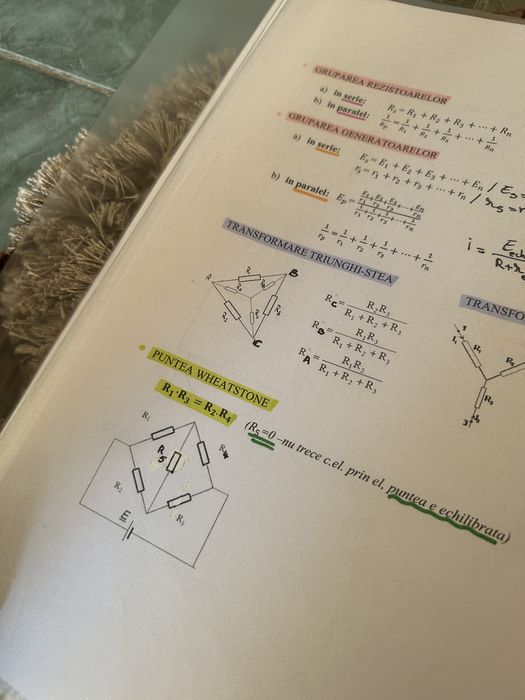 GRUPAREA REZISTOARELOR
a) in serie: Rs = R1 + R2 + R3 + ⋯ + Rn
b) in paralel: 1/Rp = 1/R1 + 1/R2 + 1/R3 + ⋯ + 1/Rn
GRUPAREA GENERATOARELOR
a) in serie: Es = E1 + E2 + E3 + ⋯ + En /
rs = r1 + r2 + r3 + ⋯ + rn /
b) in paralel: Ep = (E1/r1 + E2/r2 + E3/r3 + ⋯ + En/rn) / (1/r1 + 1/r2 + 1/r3 + ⋯ + 1/rn)
1/rp = 1/r1 + 1/r2 + 1/r3 + ⋯ + 1/rn
i =
TRANSFORMARE TRIUNGHI-STEA
A B C
RC = R2R3 / (R1 + R2 + R3)
RA = R1R2 / (R1 + R2 + R3)
PUNTEA WHEATSTONE
R1·R3 = R2.R4
(R5=0 –nu trece c.el. prin el, puntea e echilibrata)
R1
R5
R4
R2
R3
E